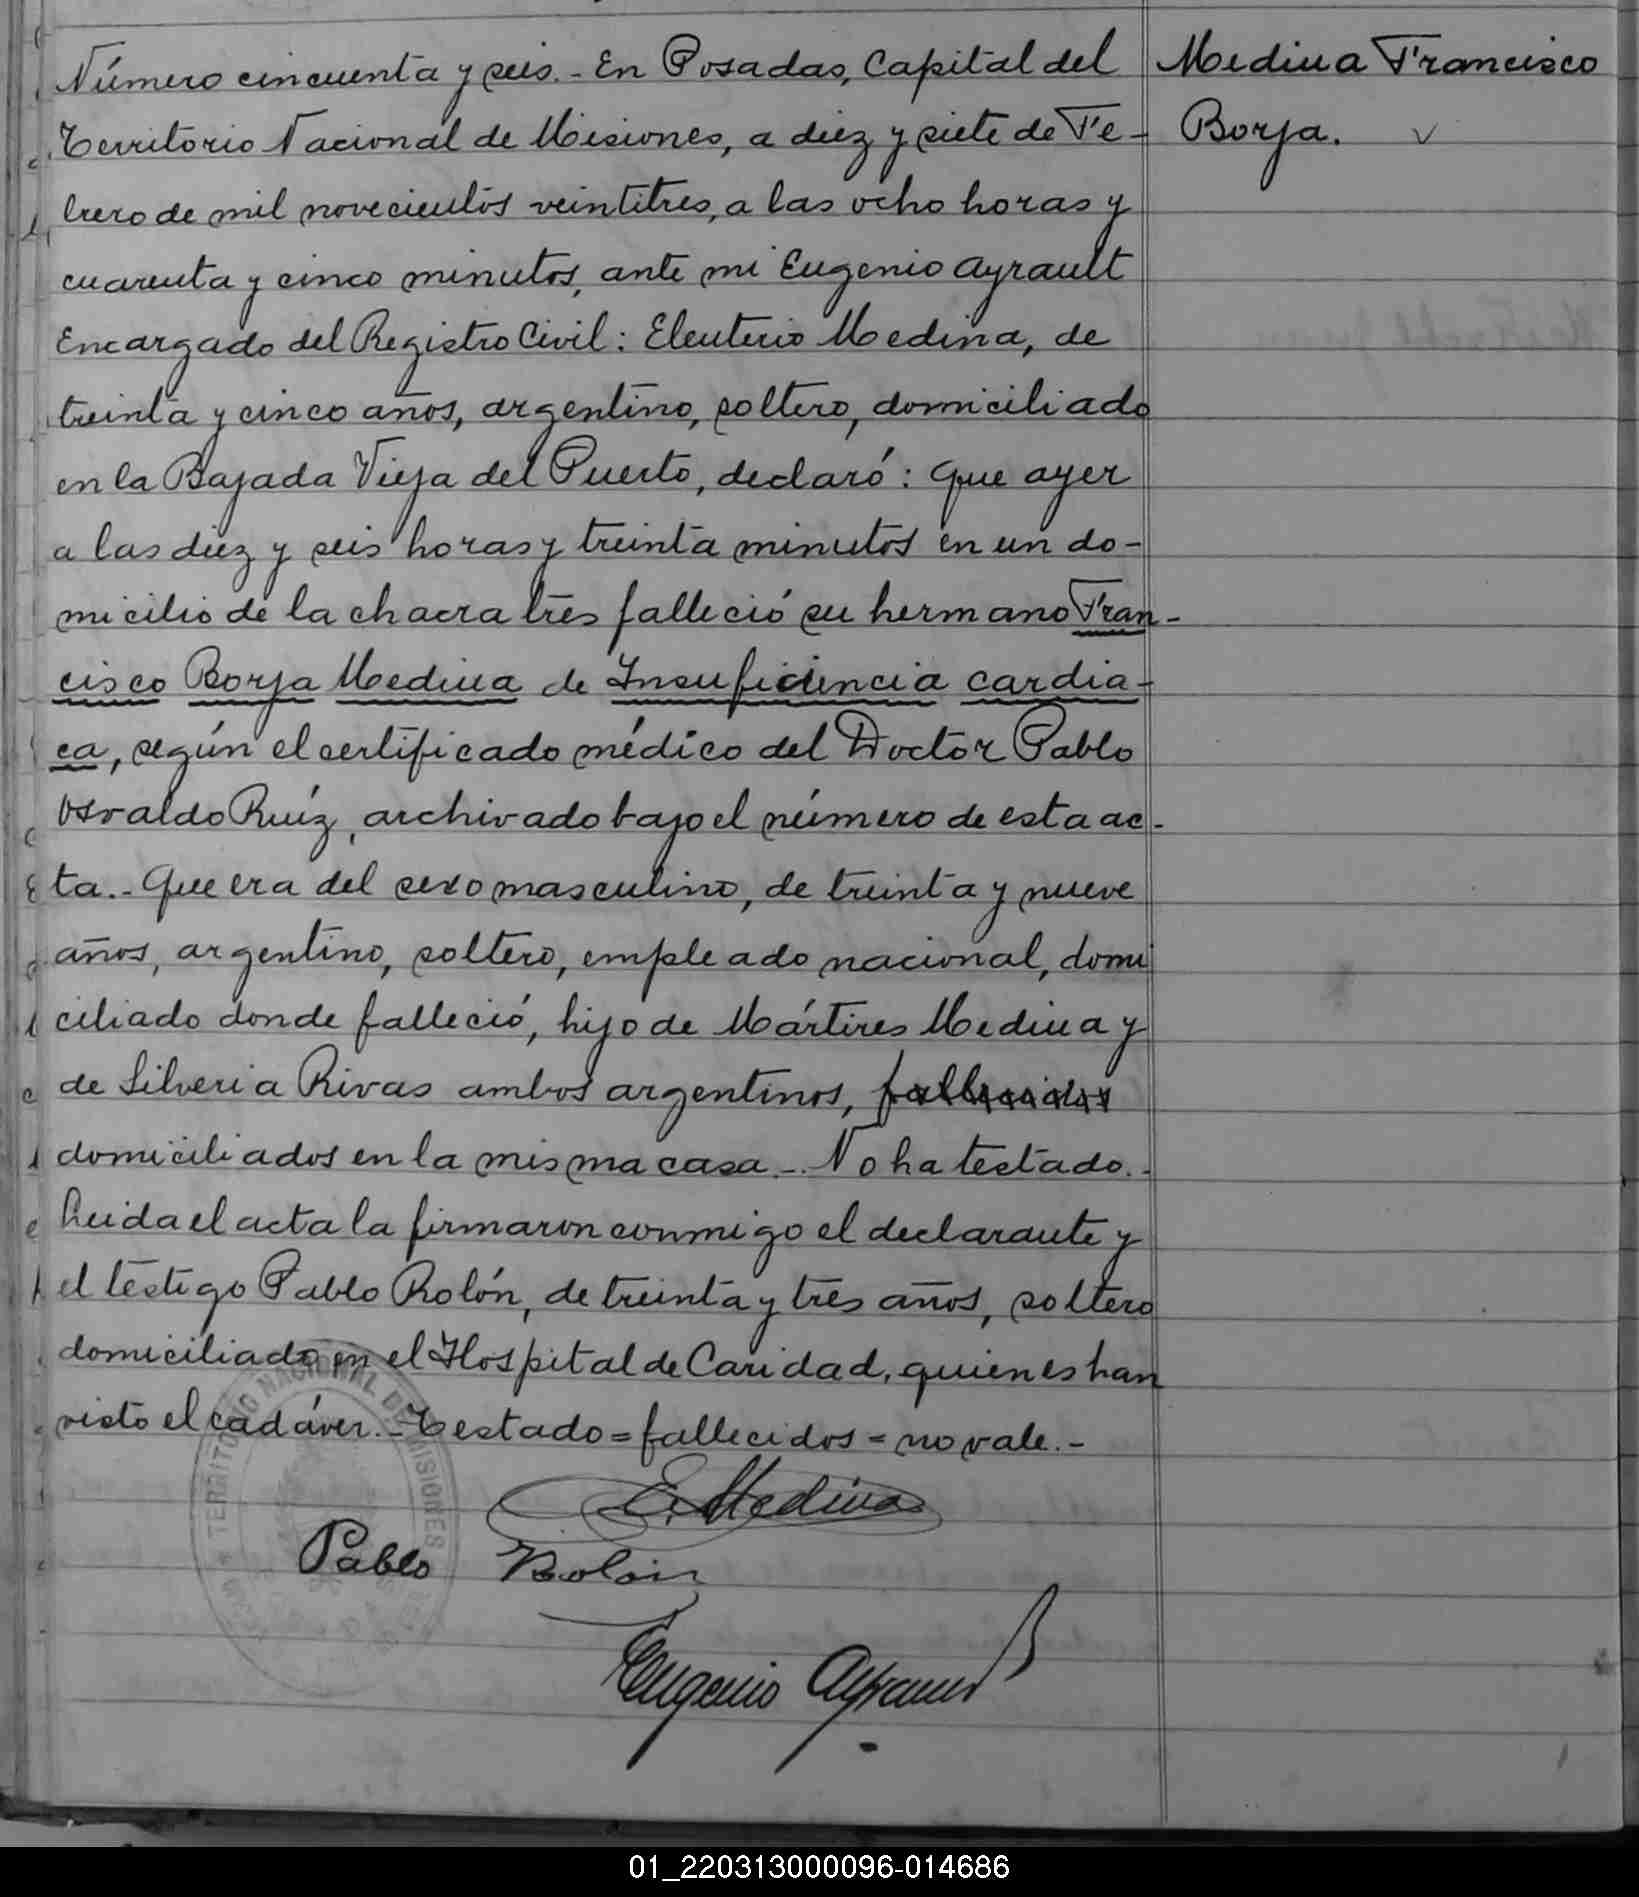 Número cincuenta y seis.- En Posadas, Capital del
Territorio Nacional de Misiones, a diez y siete de Fe-
brero de mil novecientos veintitres, a las ocho horas y
cuarenta y cinco minutos, ante mi Eugenio Ayrault
Encargado del Registro Civil: Eleuterio Medina, de
treinta y cinco años, argentino, soltero, domiciliado
en la Bajada Vieja del Puerto, declaró: Que ayer
a las diez y seis horas y treinta minutos en un do-
micilio de la chacra tres falleció su hermano Fran-
cisco Borja Medina de Insuficiencia cardia-
ca, según el certificado médico del Doctor Pablo
Osvaldo Ruíz, archivado bajo el número de esta ac-
ta.- Que era del sexo masculino, de treinta y nueve
años, argentino, soltero, empleado nacional, domi
ciliado donde falleció, hijo de Mártires Medina y
de Silveria Rivas ambos argentinos, fallecidos
domiciliados en la misma casa.- No ha testado.-
Leida el acta la firmaron conmigo el declarante y
el testigo Pablo Rolón, de treinta y tres años, soltero
domiciliado en el Hospital de Caridad, quienes han
visto el cadáver.- Testado=fallecidos=no vale.-
E. Medina
Pablo Rolón
Eugenio Ayrault
Medina Francisco
Borja.
TERRITORIO NACIONAL DE MISIONES
01_220313000096-014686